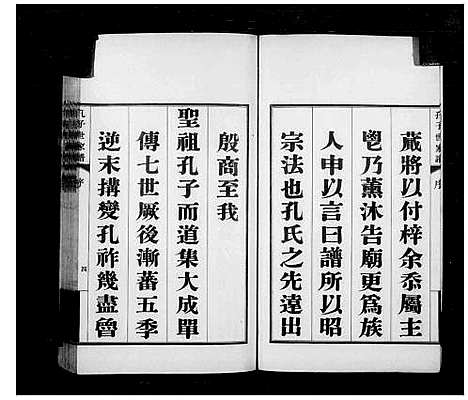 蕆將以付梓余忝屬主
鬯乃薰沐告廟更為族
人申以言曰譜所以昭
宗法也孔氏之先遠出
殷商至我
聖祖孔子而道集大成單
傳七世厥後漸蕃五季
逆末搆變孔祚幾盡魯
孔子世家譜
序
四